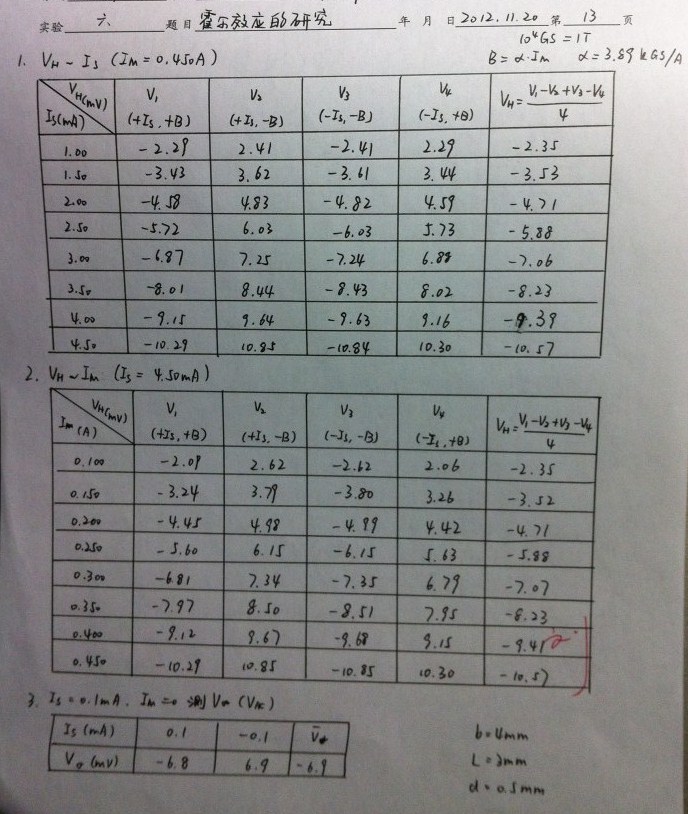 实验 六 题目 霍尔效应的研究 年 月 日 2012.11.20 第 13 页
10⁴GS = 1T
1. V_H ~ I_S (I_M = 0.450A) B = α·I_M α = 3.89 kGS/A
V_H(mV) I_S(mA) V₁ (+I_S, +B) V₂ (+I_S, -B) V₃ (-I_S, -B) V₄ (-I_S, +B) V_H = (V₁-V₂+V₃-V₄)/4
1.00 -2.29 2.41 -2.41 2.29 -2.35
1.50 -3.43 3.62 -3.61 3.44 -3.53
2.00 -4.58 4.83 -4.82 4.59 -4.71
2.50 -5.72 6.03 -6.03 5.73 -5.88
3.00 -6.87 7.25 -7.24 6.88 -7.06
3.50 -8.01 8.44 -8.43 8.02 -8.23
4.00 -9.15 9.64 -9.63 9.16 -9.39
4.50 -10.29 10.85 -10.84 10.30 -10.57
2. V_H ~ I_M (I_S = 4.50mA)
V_H(mV) I_M(A) V₁ (+I_S, +B) V₂ (+I_S, -B) V₃ (-I_S, -B) V₄ (-I_S, +B) V_H = (V₁-V₂+V₃-V₄)/4
0.100 -2.09 2.62 -2.62 2.06 -2.35
0.150 -3.24 3.79 -3.80 3.26 -3.52
0.200 -4.45 4.98 -4.99 4.42 -4.71
0.250 -5.60 6.15 -6.15 5.63 -5.88
0.300 -6.81 7.34 -7.35 6.79 -7.07
0.350 -7.97 8.50 -8.51 7.95 -8.23
0.400 -9.12 9.67 -9.68 9.15 -9.41
0.450 -10.29 10.85 -10.85 10.30 -10.57
3. I_S = 0.1mA, I_M = 0 测 V_σ (V_AC)
I_S (mA) 0.1 -0.1 V̄_σ
V_σ (mV) -6.8 6.9 -6.9
b = 4mm
L = 3mm
d = 0.5mm